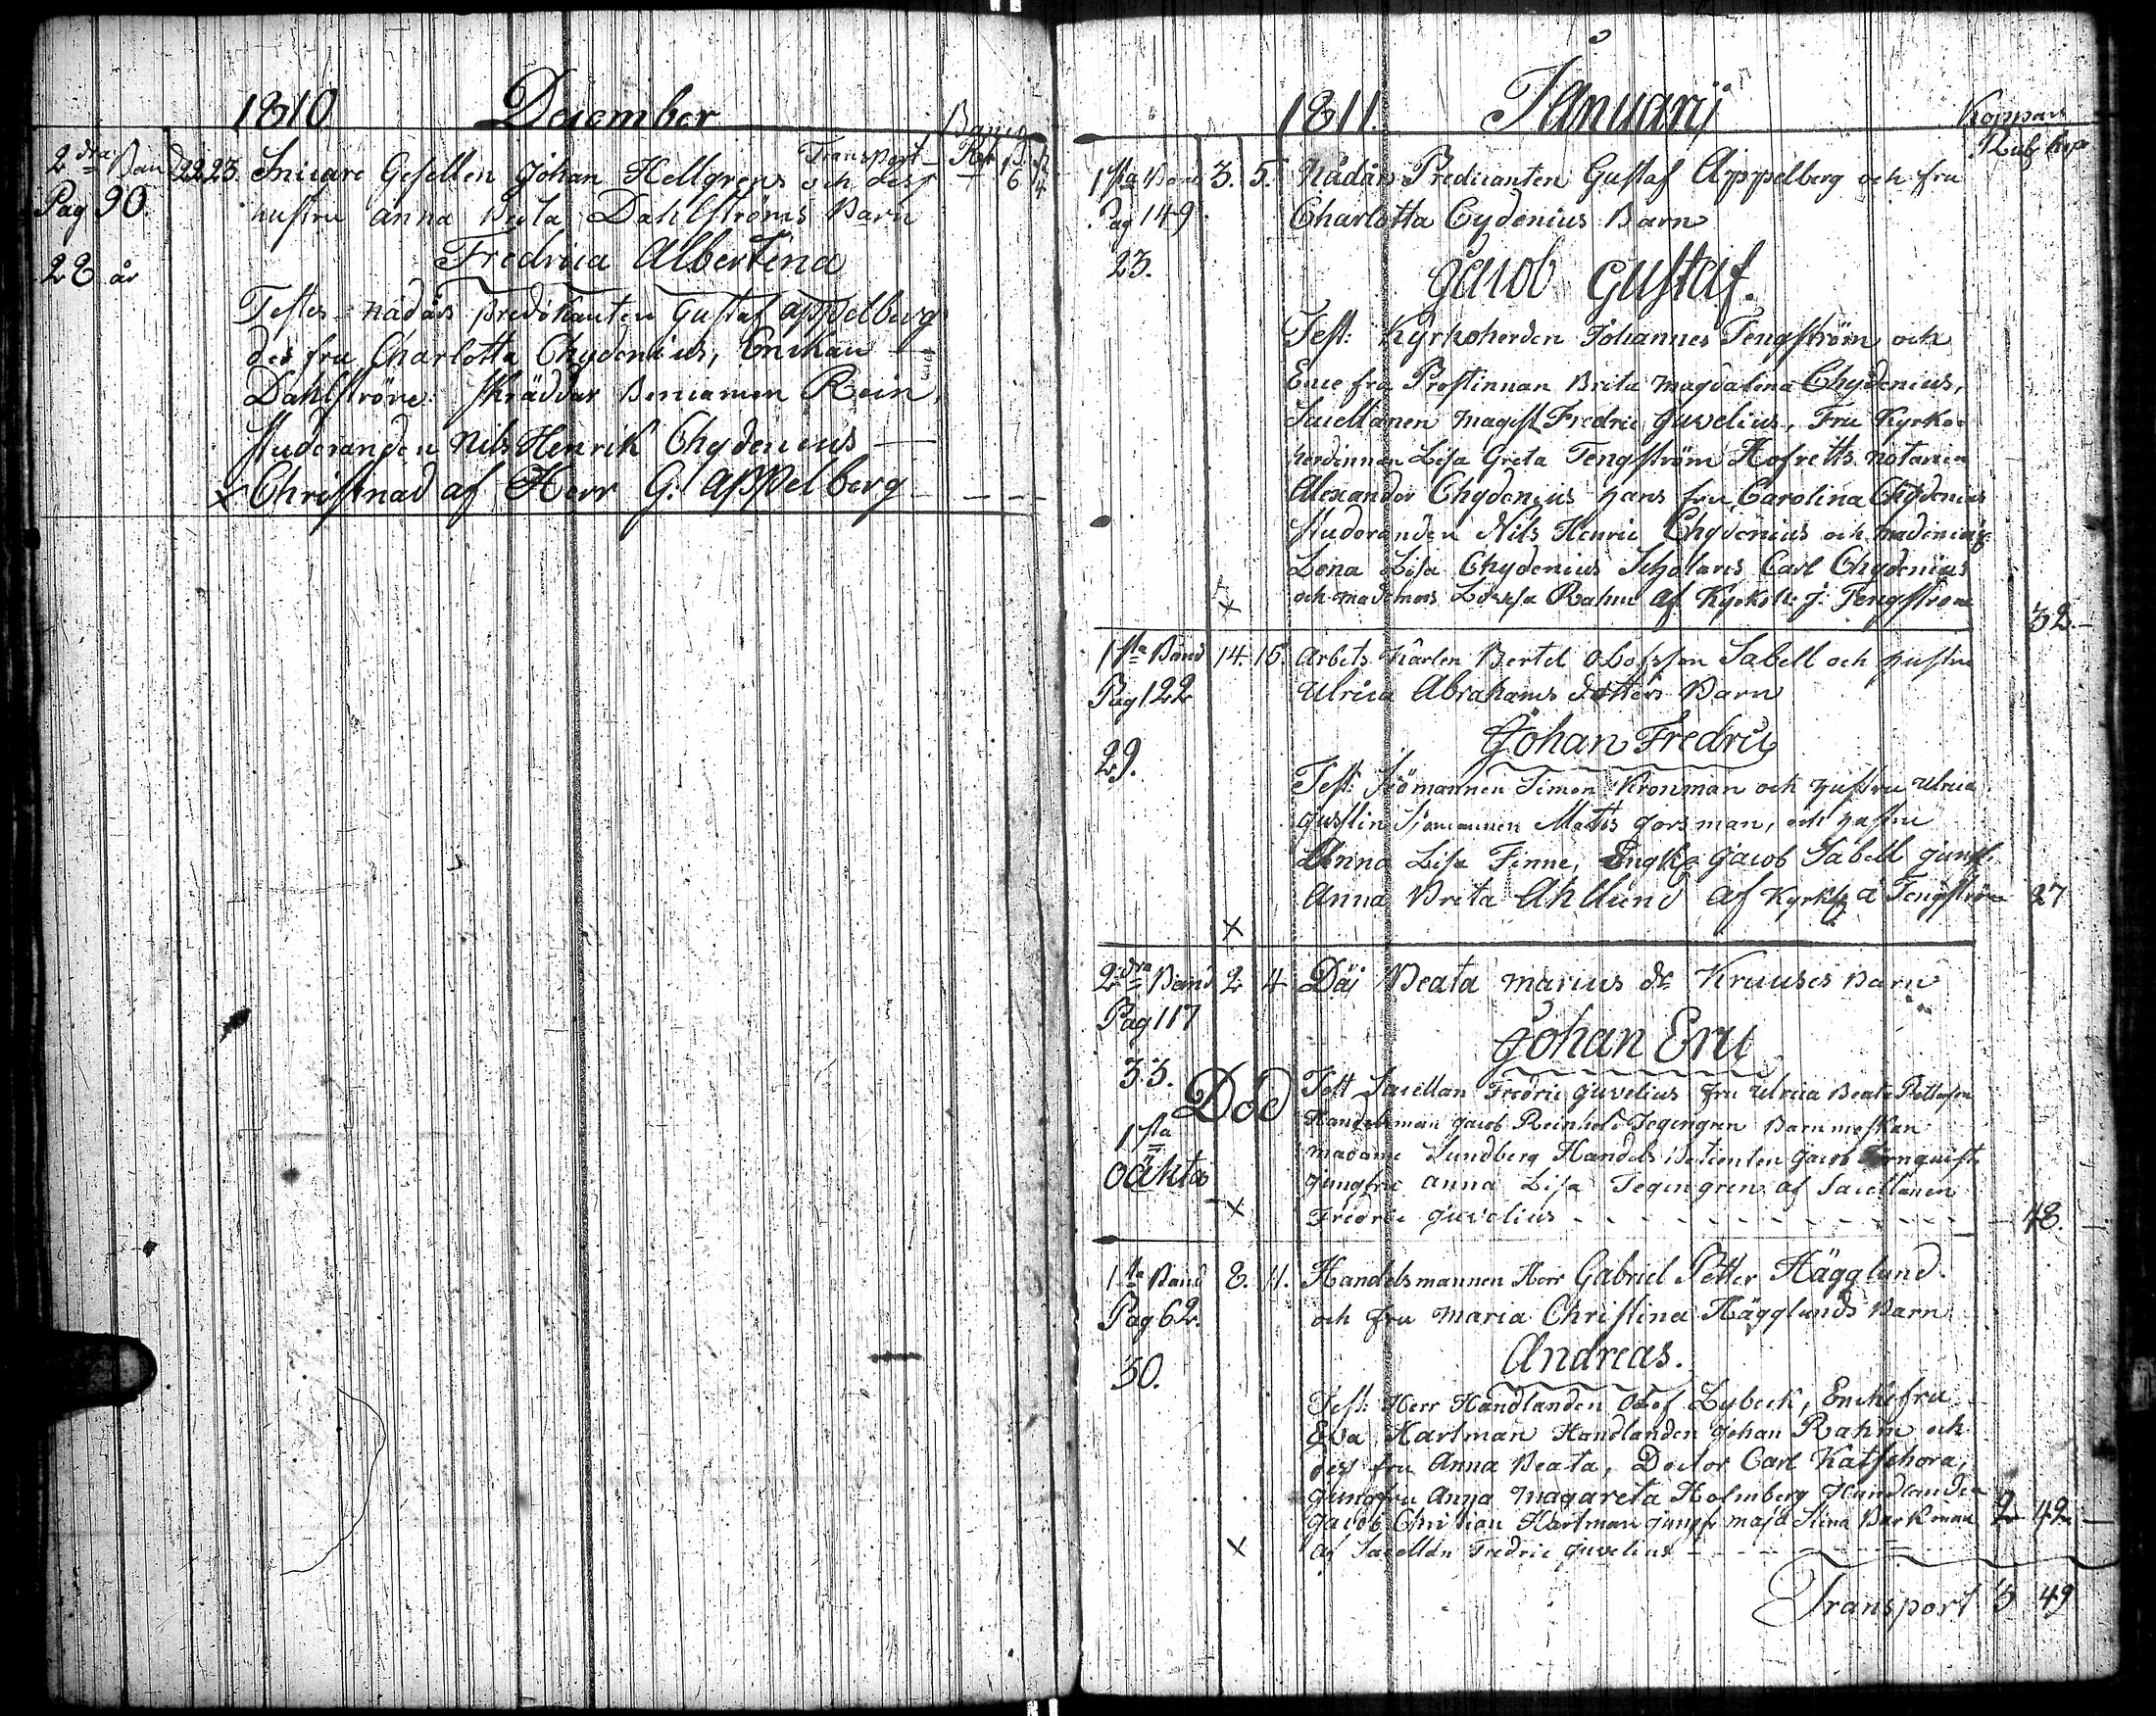 1810 December
Transport
2dra Band 22 23. Snicare Gesellen Johan Hellgrens och dess
Pag 90. hustru Anna Beata Dahlströms Barn
Fredrica Albertina
28 år
Testes nådårs predikanten Gustaf Appelberg
des fru Charlotta Chydenius, Enckan
Dahlström Skräddar Beniamin Rein,
studeranden Nils Henrik Chydenius
x Christnad af Herr G. Appelberg
1811. Januarij
Koppar
Rub kop
1sta Band 3. 5. Nådårs Predicanten Gustaf Appelberg och fru
Pag 149 Charlotta Cydenius Barn
23. Jacob Gustaf.
Test: Kyrkoherden Johannes Tengström och
Encefru Prostinnan Brita Magdalena Chydenius,
Sacellanen Magist Fredric Juvelius, Fru Kyrko-
herdinnan Lisa Greta Tengström Hofretts notarien
Alexander Chydenius hans fru Carolina Chydenius
studeranden Nils Henric Chydenius och
Lena Lisa Chydenius Scholaris Carl Chydenius
x och Lovisa Rahm af Kyrkoh: J: Tengström 32.
1sta Band 14. 15. Arbets Karlen Bertel Olofsson Sabell och hustru
Pag 122 Ulrica Abrahams dotters Barn
Johan Fredric
29.
Test: Sjömannen Simon Kronman och hustru Ulrica
Juslin Sjömannen Matts Forsman, och hustru
Anna Lisa Finne, Jacob Sabell jungf.
x Anna Brita Ahllund af Tengström 27
2dra Band 2 4 Däj Beata Marius dr Kruuses Barn
Pag 117
Johan Eric
33. Död Test Sacellan Fredric Juvelius fru Ulrica Beata
Handelsman Jacob Reinhold Tegengren Barnmorskan
1sta madame Sundberg Handels Betienten Jacob
oäkta jungfru Anna Lisa Tegengren af Sacellanen
x Fredric Juvelius 48.
1sta Band 8. 11. Handelsmannen Herr Gabriel Petter Hägglund
Pag 62. och fru Maria Christina Hägglunds Barn
Andreas.
30.
Test: Herr Handlanden Olof Lybeck, Enckefru
Eva Hartman Handlanden Johan Rahm och
dess fru Anna Beata, Doctor Carl Katschora,
jungfru Anna Magareta Holmberg Handlanden
Jacob Christian Hartman jungfr Maja Stina Barkman 2 42
x af Sacellan Fredric Juvelius
Transport 3 49